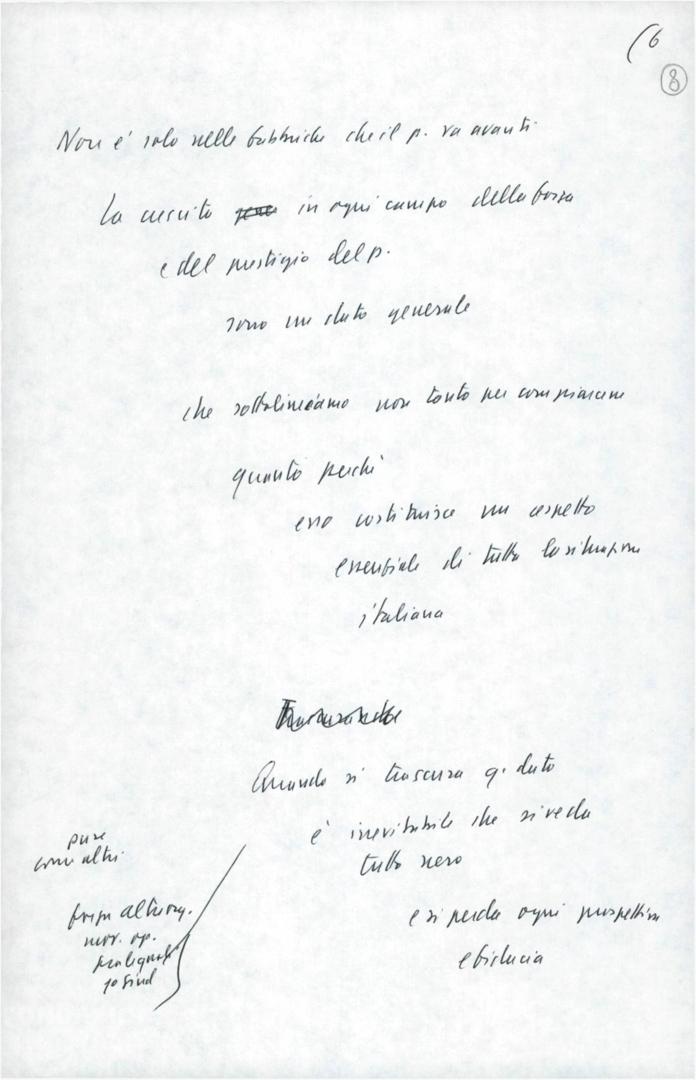 (6
8
Non è solo nelle fabbriche che il p. va avanti
La crescita in ogni campo della forza
e del prestigio del p.
sono un dato generale
che sottolineiamo non tanto per compiacere
quanto perché
esso costituisce un aspetto
essenziale di tutta la situazione
italiana
Quando si trascura q. dato
è inevitabile che si veda
tutto nero
e si perda ogni prospettiva
e fiducia
pure
come altri
forza altre org.
mov. op.